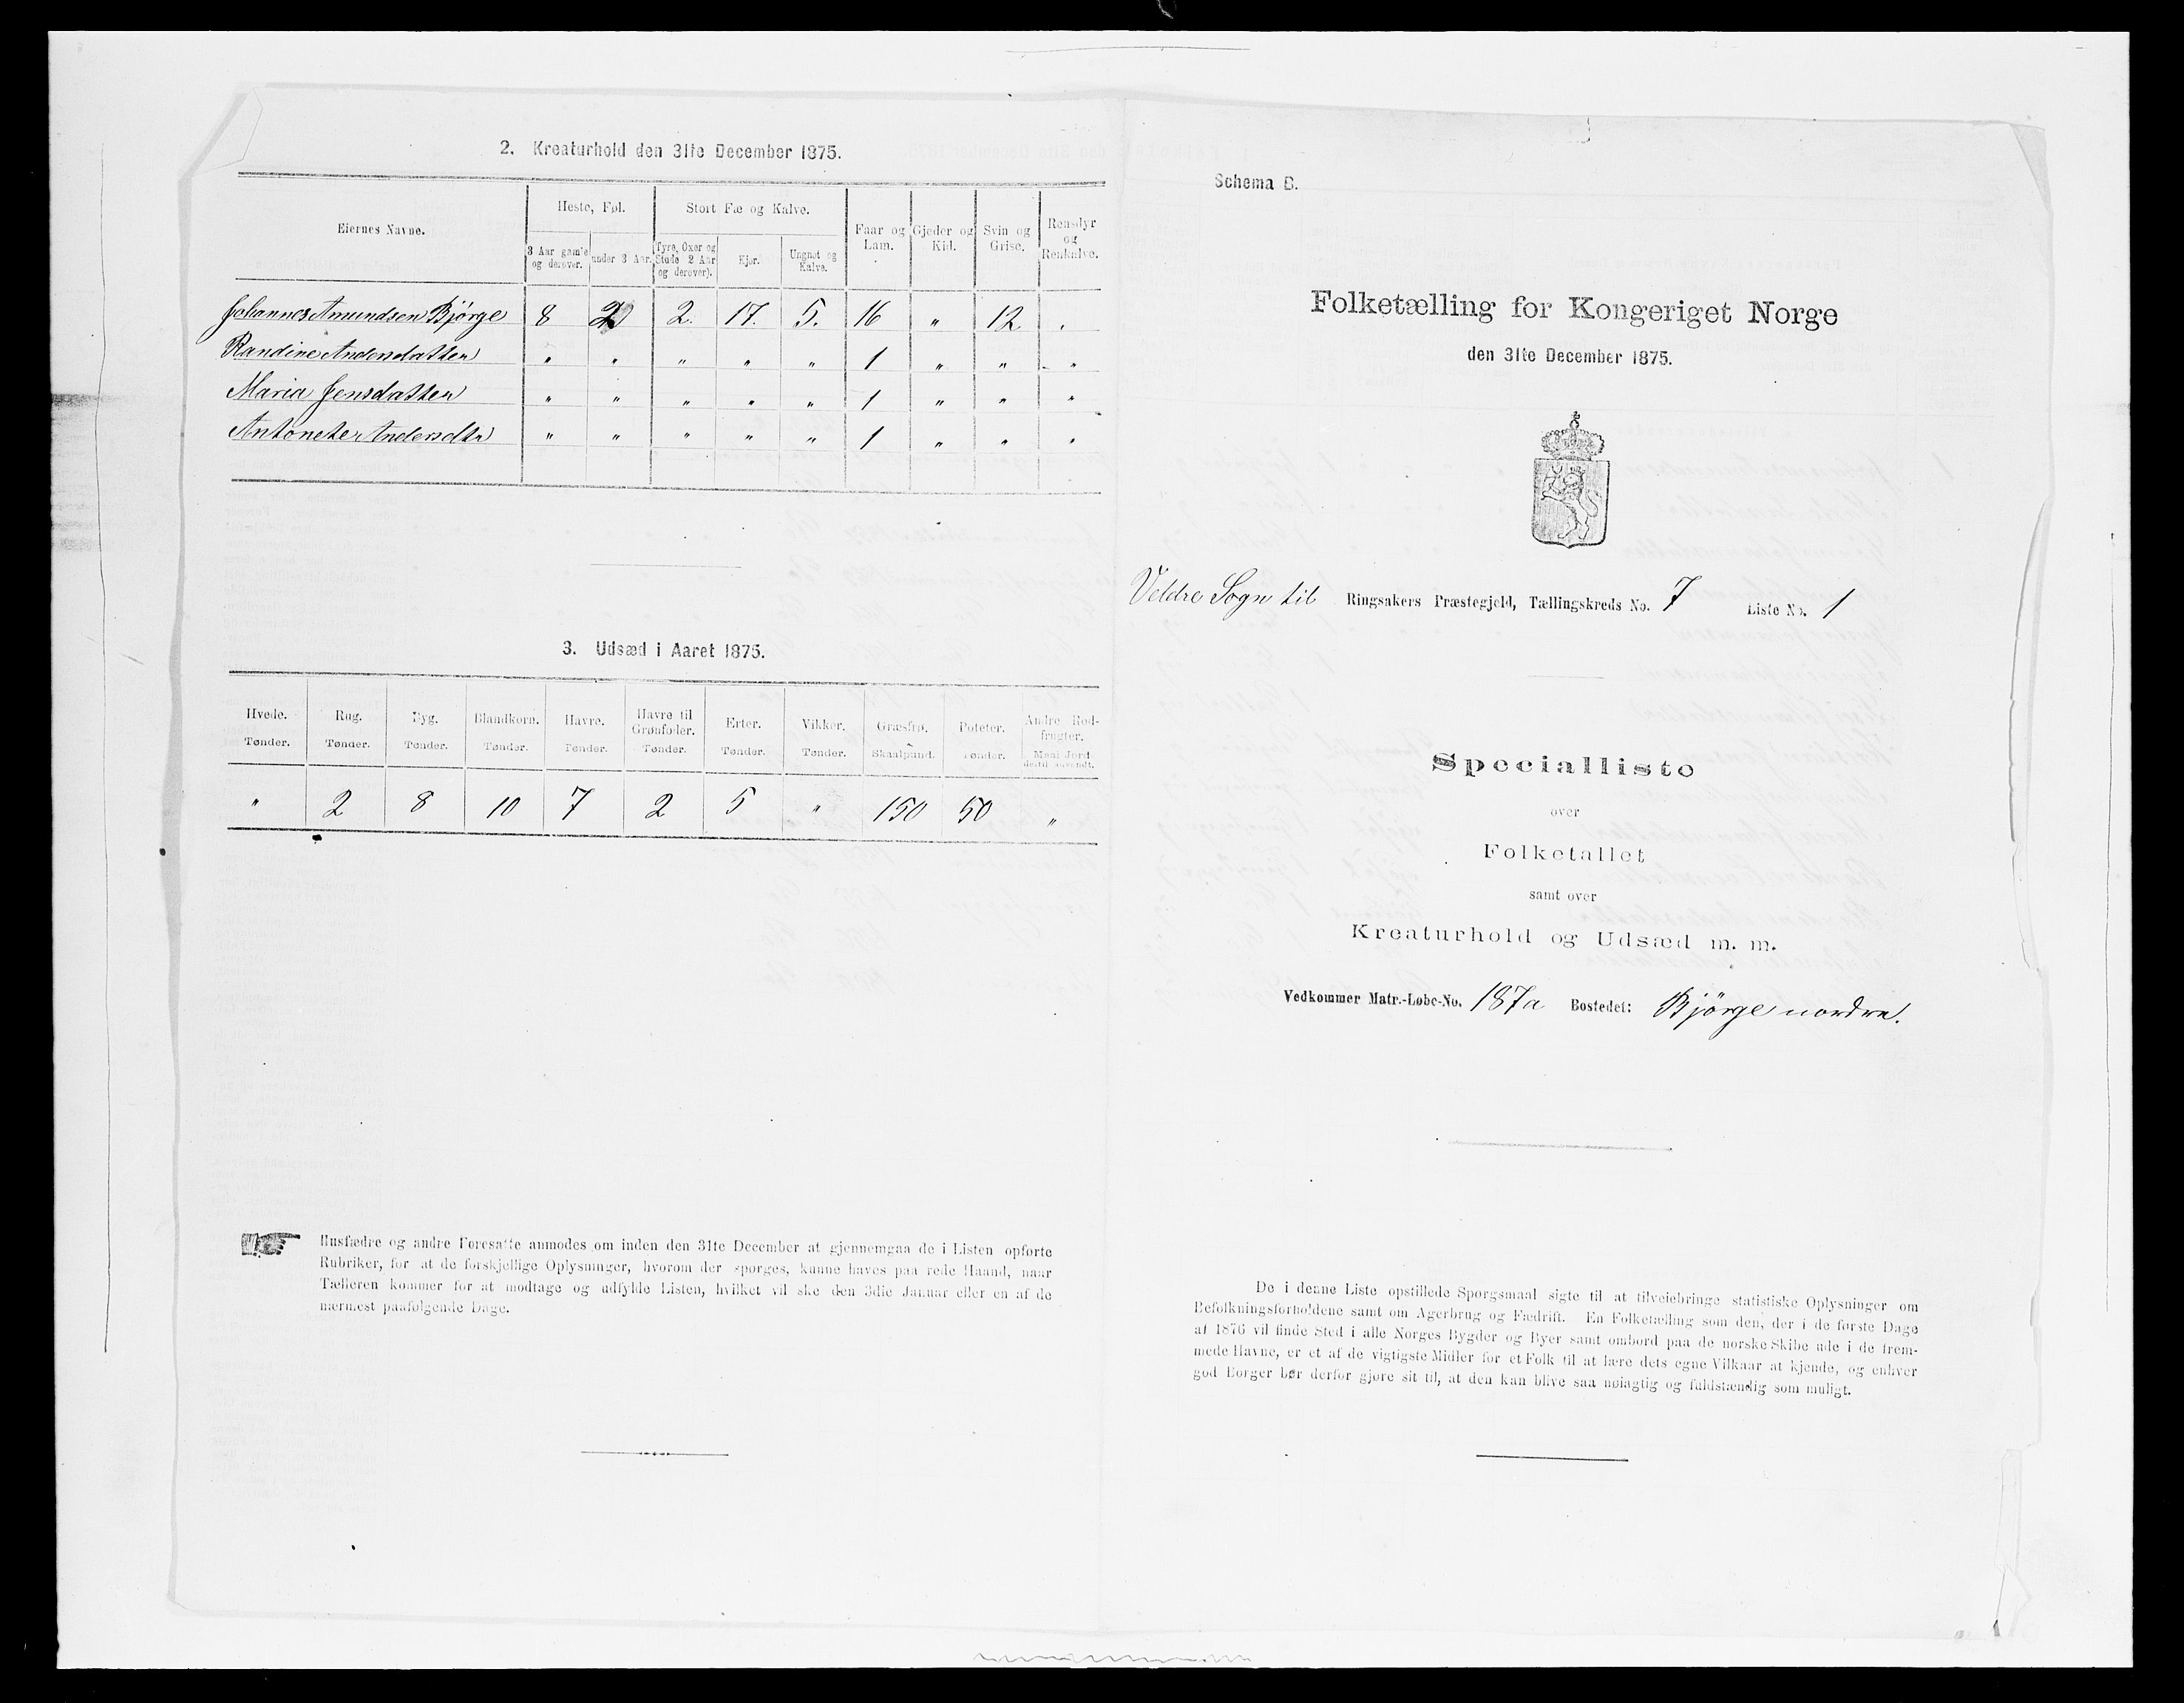 2. Kreaturhold den 31te December 1875.
Eiernes Navne.
Heste, Føl.
Stort Fæ og Kalve.
3 Aar gamle og derover.
under 3 Aar.
Tyre, Oxer og Stude 2 Aar og derover).
Kjør.
Ungnøt og Kalve.
Faar og Lam.
Gjeder og Kid.
Svin og Grise.
Rensdyr og Renkalve.
Johannes Amundsen Bjørge 8 2 2. 17. 5. 16 " 12 "
Randine Andersdatter " " " " " 1 " " "
Maria Jensdatter " " " " " 1 " " "
Antonete Andersdtr " " " " " 1 " " "
3. Udsæd i Aaret 1875.
Hvede. Rug. Byg. Blandkorn. Havre. Havre til Grønfoder. Erter. Vikker. Græsfrø. Poteter. Andre Rodfrugter.
Tønder. Tønder. Tønder. Tønder. Tønder. Tønder. Tønder. Tønder. Skaalpund. Tønder. Maal Jord dertil anvendt.
" 2 8 10 7 2 5 " 150 50 "
Husfædre og andre Foresatte anmodes om inden den 31te December at gjennemgaa de i Listen opførte
Rubriker, for at de forskjellige Oplysninger, hvorom der spørges, kunne haves paa rede Haand, naar
Tælleren kommer for at modtage og udfylde Listen, hvilket vil ske den 3die Januar eller en af de
nærmest paafølgende Dage.
Schema B.
Folketælling for Kongeriget Norge
den 31te December 1875.
Veldre Sogn til Ringsakers Præstegjeld, Tællingskreds No. 7 Liste No. 1
Specialliste
over
Folketallet
samt over
Kreaturhold og Udsæd m. m.
Vedkommer Matr.-Løbe-No. 187a Bostedet: Bjørge nordre.
De i denne Liste opstillede Spørgsmaal sigte til at tilveiebringe statistiske Oplysninger om
Befolkningsforholdene samt om Agerbrug og Fædrift. En Folketælling som den, der i de første Dage
af 1876 vil finde Sted i alle Norges Bygder og Byer samt ombord paa de norske Skibe ude i de frem-
mede Havne, er et af de vigtigste Midler for et Folk til at lære dets egne Vilkaar at kjende, og enhver
god Borger bør derfor gjøre sit til, at den kan blive saa nøiagtig og fuldstændig som muligt.